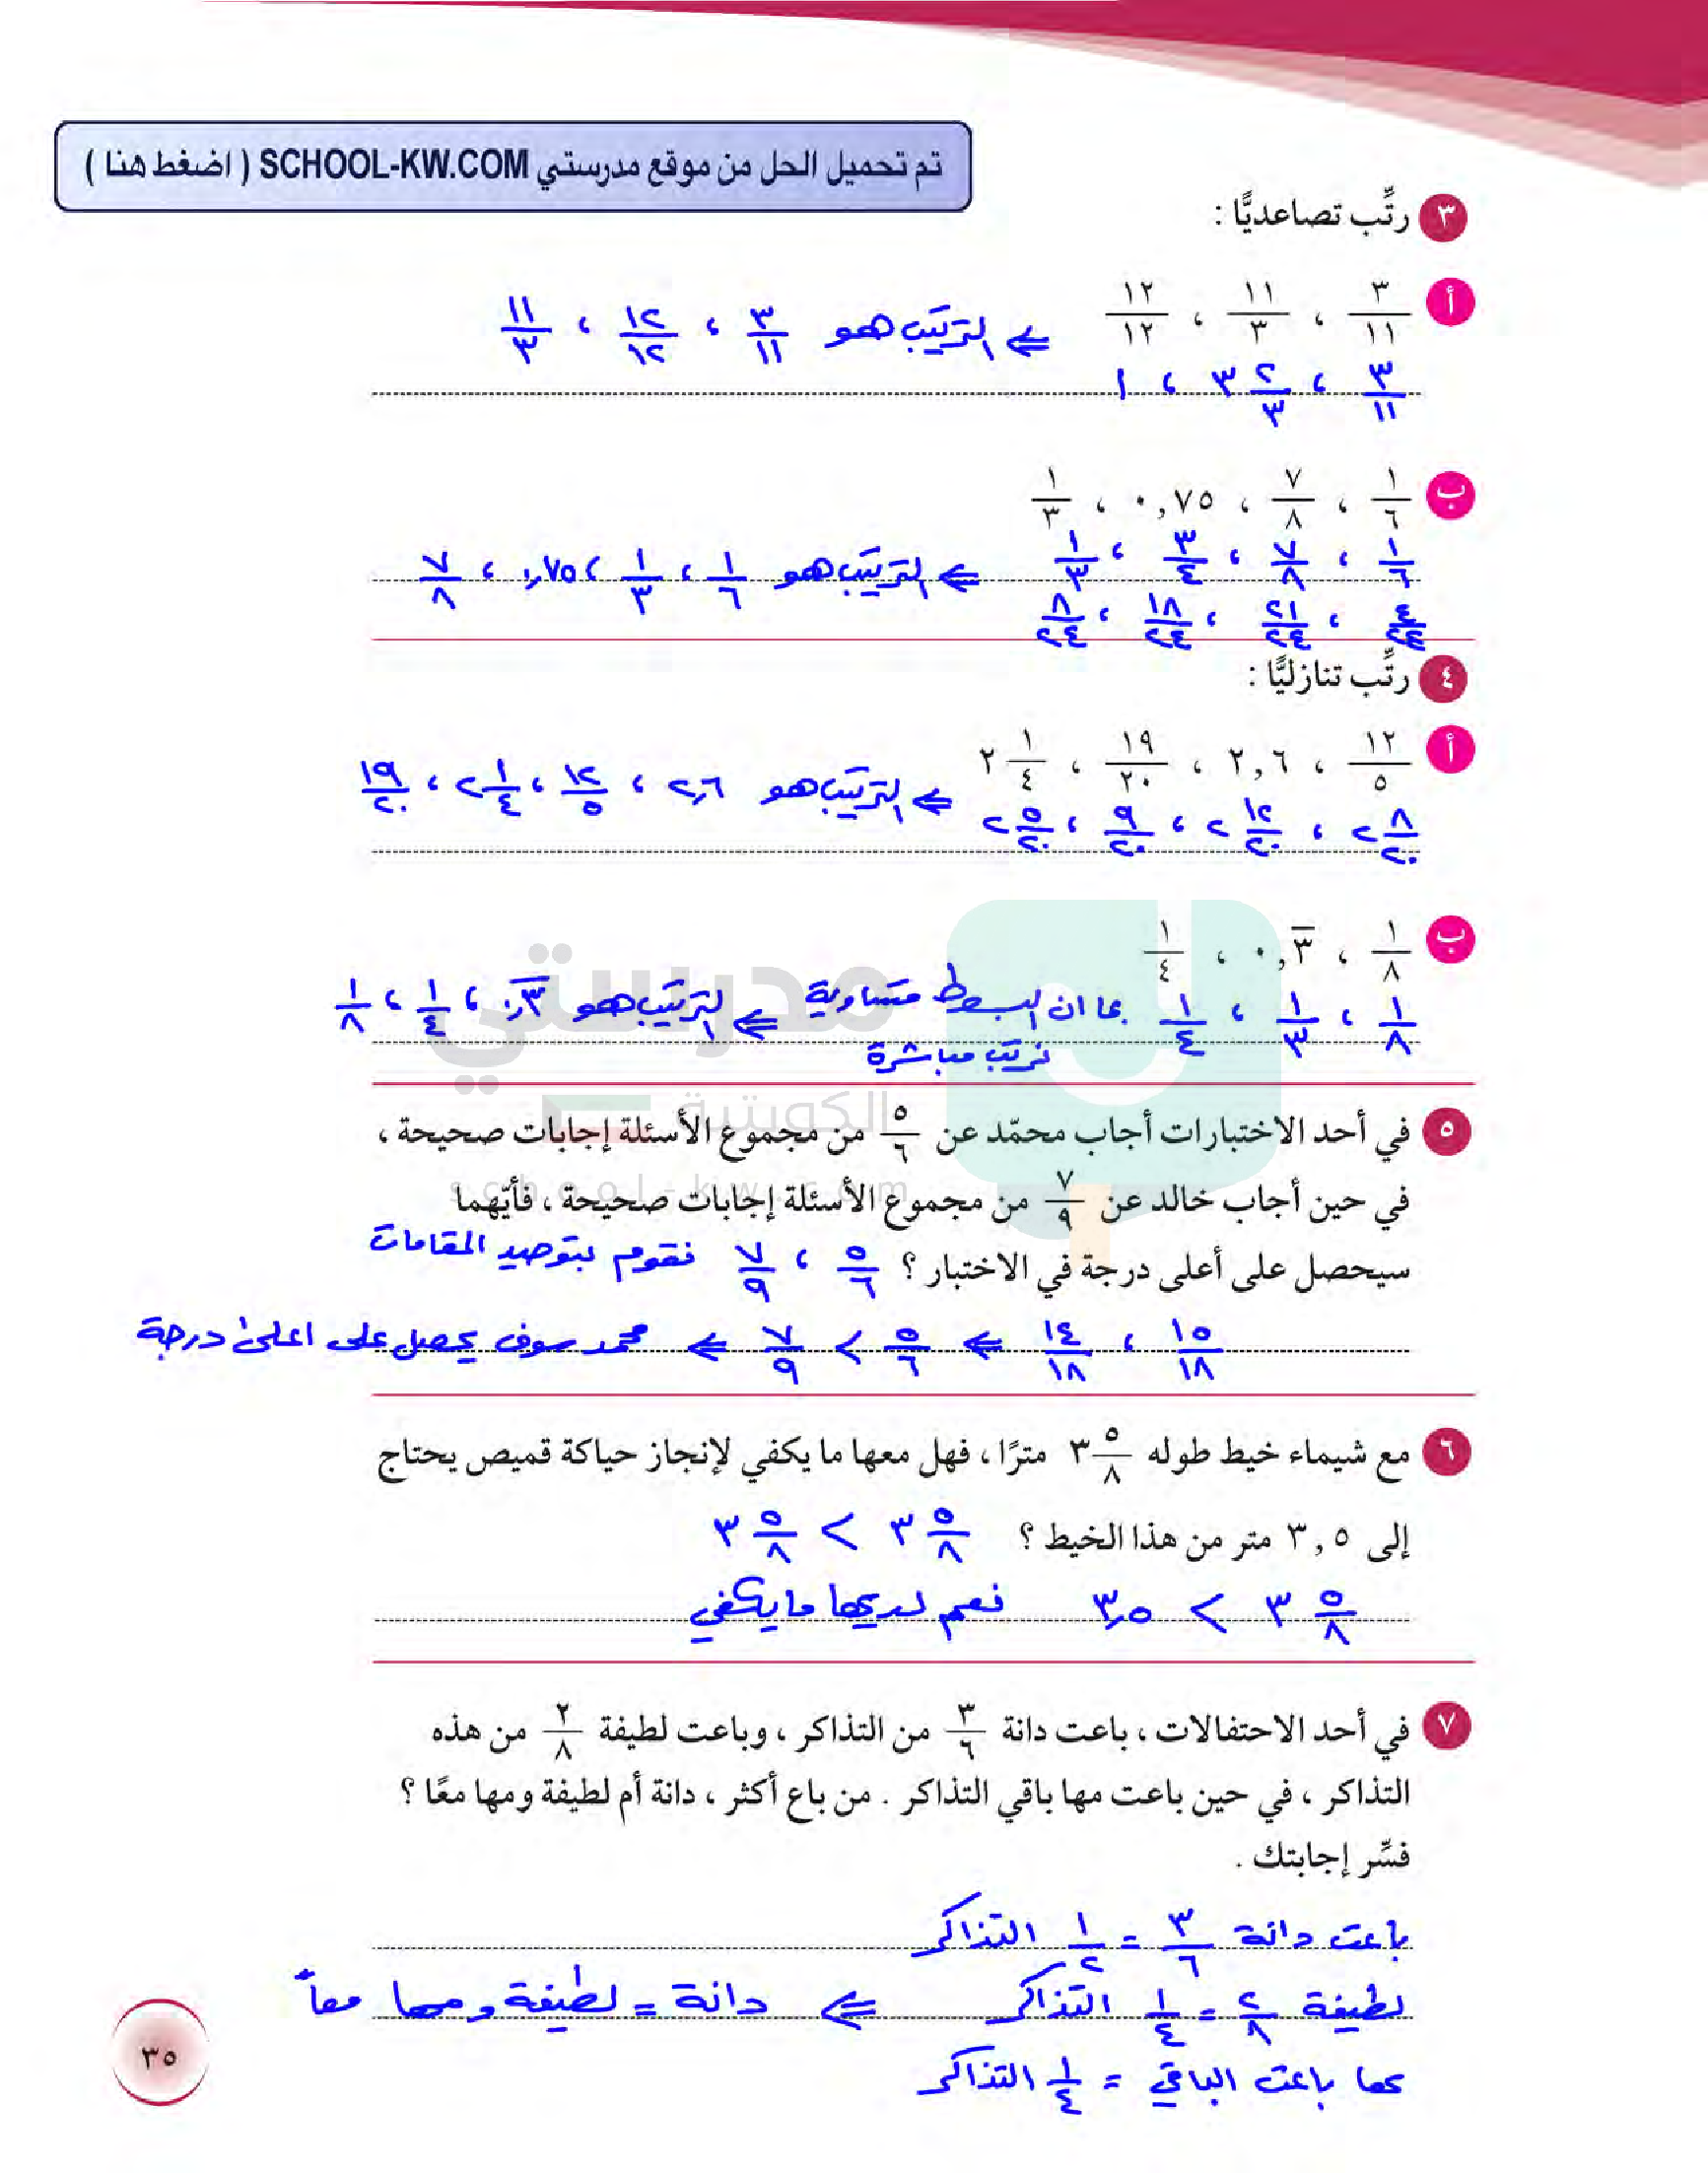 تم تحميل الحل من موقع مدرستي SCHOOL-KW.COM ( اضغط هنا )
٣ رتِّب تصاعديًّا :
أ ٣/١١ ، ١١/٣ ، ١٢/١٢ ⇐ الترتيب هو ٣/١١ ، ١٢/١٢ ، ١١/٣
٣/١١ ، ٣ ٢/٣ ، ١
ب ١/٦ ، ٧/٨ ، ٠,٧٥ ، ١/٣
١/٦ ، ٧/٨ ، ٣/٤ ، ١/٣ ⇐ الترتيب هو ١/٦ ، ١/٣ ، ٠,٧٥ ، ٧/٨
٤/٢٤ ، ٢١/٢٤ ، ١٨/٢٤ ، ٨/٢٤
٤ رتِّب تنازليًّا :
أ ١٢/٥ ، ٢,٦ ، ١٩/٢٠ ، ٢ ١/٤ ⇐ الترتيب هو ٢,٦ ، ١٢/٥ ، ٢ ١/٤ ، ١٩/٢٠
٢ ٨/٢٠ ، ٢ ١٢/٢٠ ، ٩/٢٠ ، ٢ ٥/٢٠
ب ١/٨ ، ٠,٣̅ ، ١/٤
١/٨ ، ١/٣ ، ١/٤ بما ان البسوط متساوية ⇐ الترتيب هو ٠,٣̅ ، ١/٤ ، ١/٨
نرتب مباشرة
مدرستي
الكويتية
school-kw.com
٥ في أحد الاختبارات أجاب محمّد عن ٥/٦ من مجموع الأسئلة إجابات صحيحة ،
في حين أجاب خالد عن ٧/٩ من مجموع الأسئلة إجابات صحيحة ، فأيّهما
سيحصل على أعلى درجة في الاختبار ؟ ٥/٦ ، ٧/٩ نقوم بتوحيد المقامات
١٥/١٨ ، ١٤/١٨ ⇐ ٥/٦ > ٧/٩ ⇐ محمد سوف يحصل على اعلى درجة
٦ مع شيماء خيط طوله ٣ ٥/٨ مترًا ، فهل معها ما يكفي لإنجاز حياكة قميص يحتاج
إلى ٣,٥ متر من هذا الخيط ؟ ٣ ٥/٨ > ٣ ٥/٨
٣ ٥/٨ > ٣,٥ نعم لديها ما يكفي
٧ في أحد الاحتفالات ، باعت دانة ٣/٦ من التذاكر ، وباعت لطيفة ٢/٨ من هذه
التذاكر ، في حين باعت مها باقي التذاكر . من باع أكثر ، دانة أم لطيفة ومها معًا ؟
فسِّر إجابتك .
باعت دانة ٣/٦ = ١/٢ التذاكر
لطيفة ٢/٨ = ١/٤ التذاكر ⇐ دانة = لطيفة ومها معاً
مها باعت الباقي = ١/٤ التذاكر
٣٥